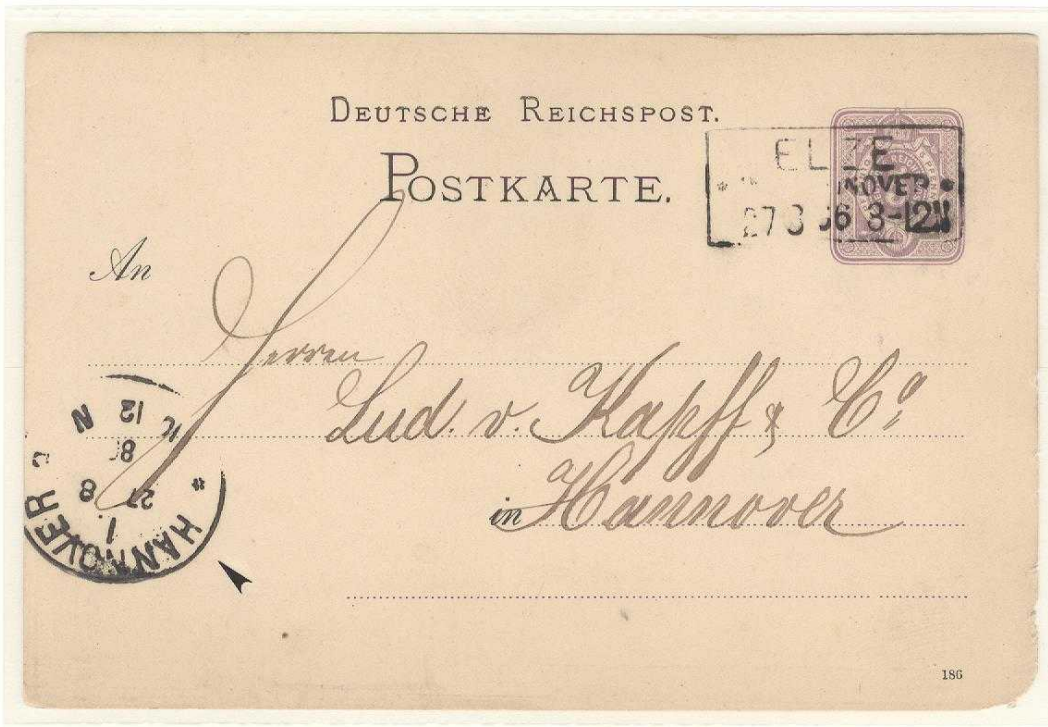 DEUTSCHE REICHSPOST.
POSTKARTE.
ELZE
27 8 86 8-12N
An
Herren
Lud. v. Kapff & Co.
in Hannover
HANNOVER
1
27 8
12 N
186